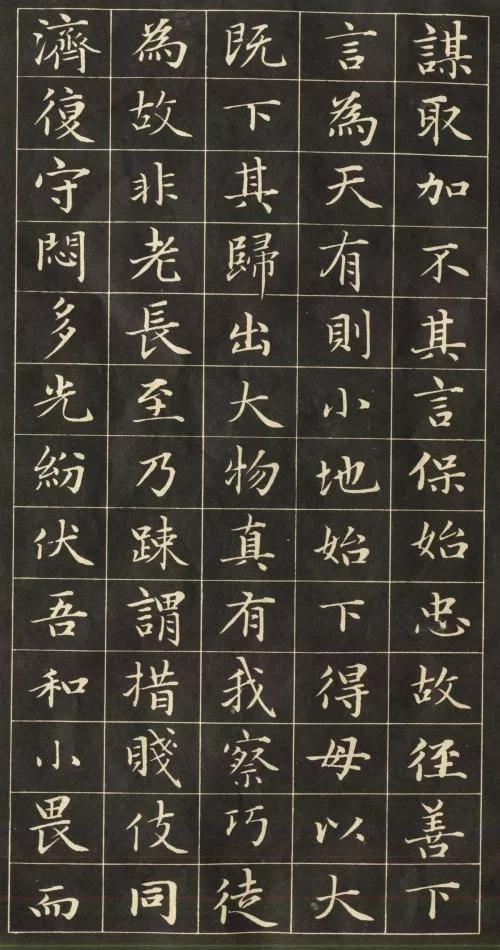 謀取加不其言保始忠故径善下
言為天有則小地始下得母以大
既下其歸出大物真有我察巧徒
為故非老長至乃踈謂措賤伎同
濟復守悶多光紛伏吾和小畏而